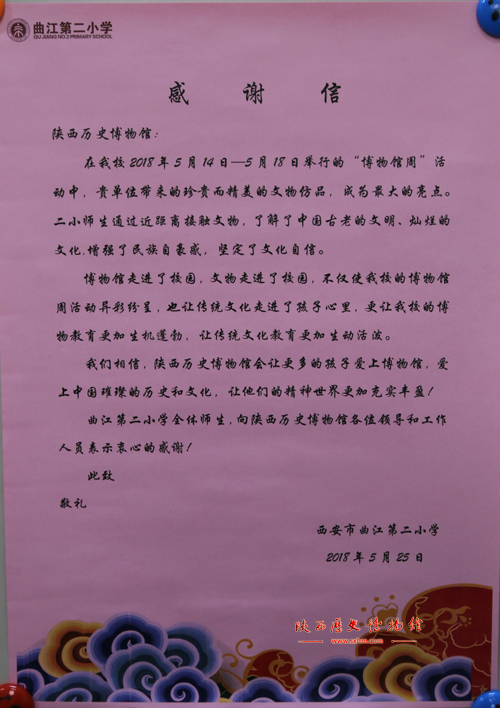 曲江第二小学
QU JIANG NO.2 PRIMARY SCHOOL
感谢信
陕西历史博物馆：
在我校2018年5月14日—5月18日举行的“博物馆周”活
动中，贵单位带来的珍贵而精美的文物仿品，成为最大的亮点。
二小师生通过近距离接触文物，了解了中国古老的文明、灿烂的
文化,增强了民族自豪感，坚定了文化自信。
博物馆走进了校园，文物走进了校园，不仅使我校的博物馆
周活动异彩纷呈，也让传统文化走进了孩子心里，更让我校的博
物教育更加生机蓬勃，让传统文化教育更加生动活泼。
我们相信，陕西历史博物馆会让更多的孩子爱上博物馆，爱
上中国璀璨的历史和文化，让他们的精神世界更加充实丰盈！
曲江第二小学全体师生,向陕西历史博物馆各位领导和工作
人员表示衷心的感谢！
此致
敬礼
西安市曲江第二小学
2018年5月25日
陕西历史博物馆
www.sxhm.com